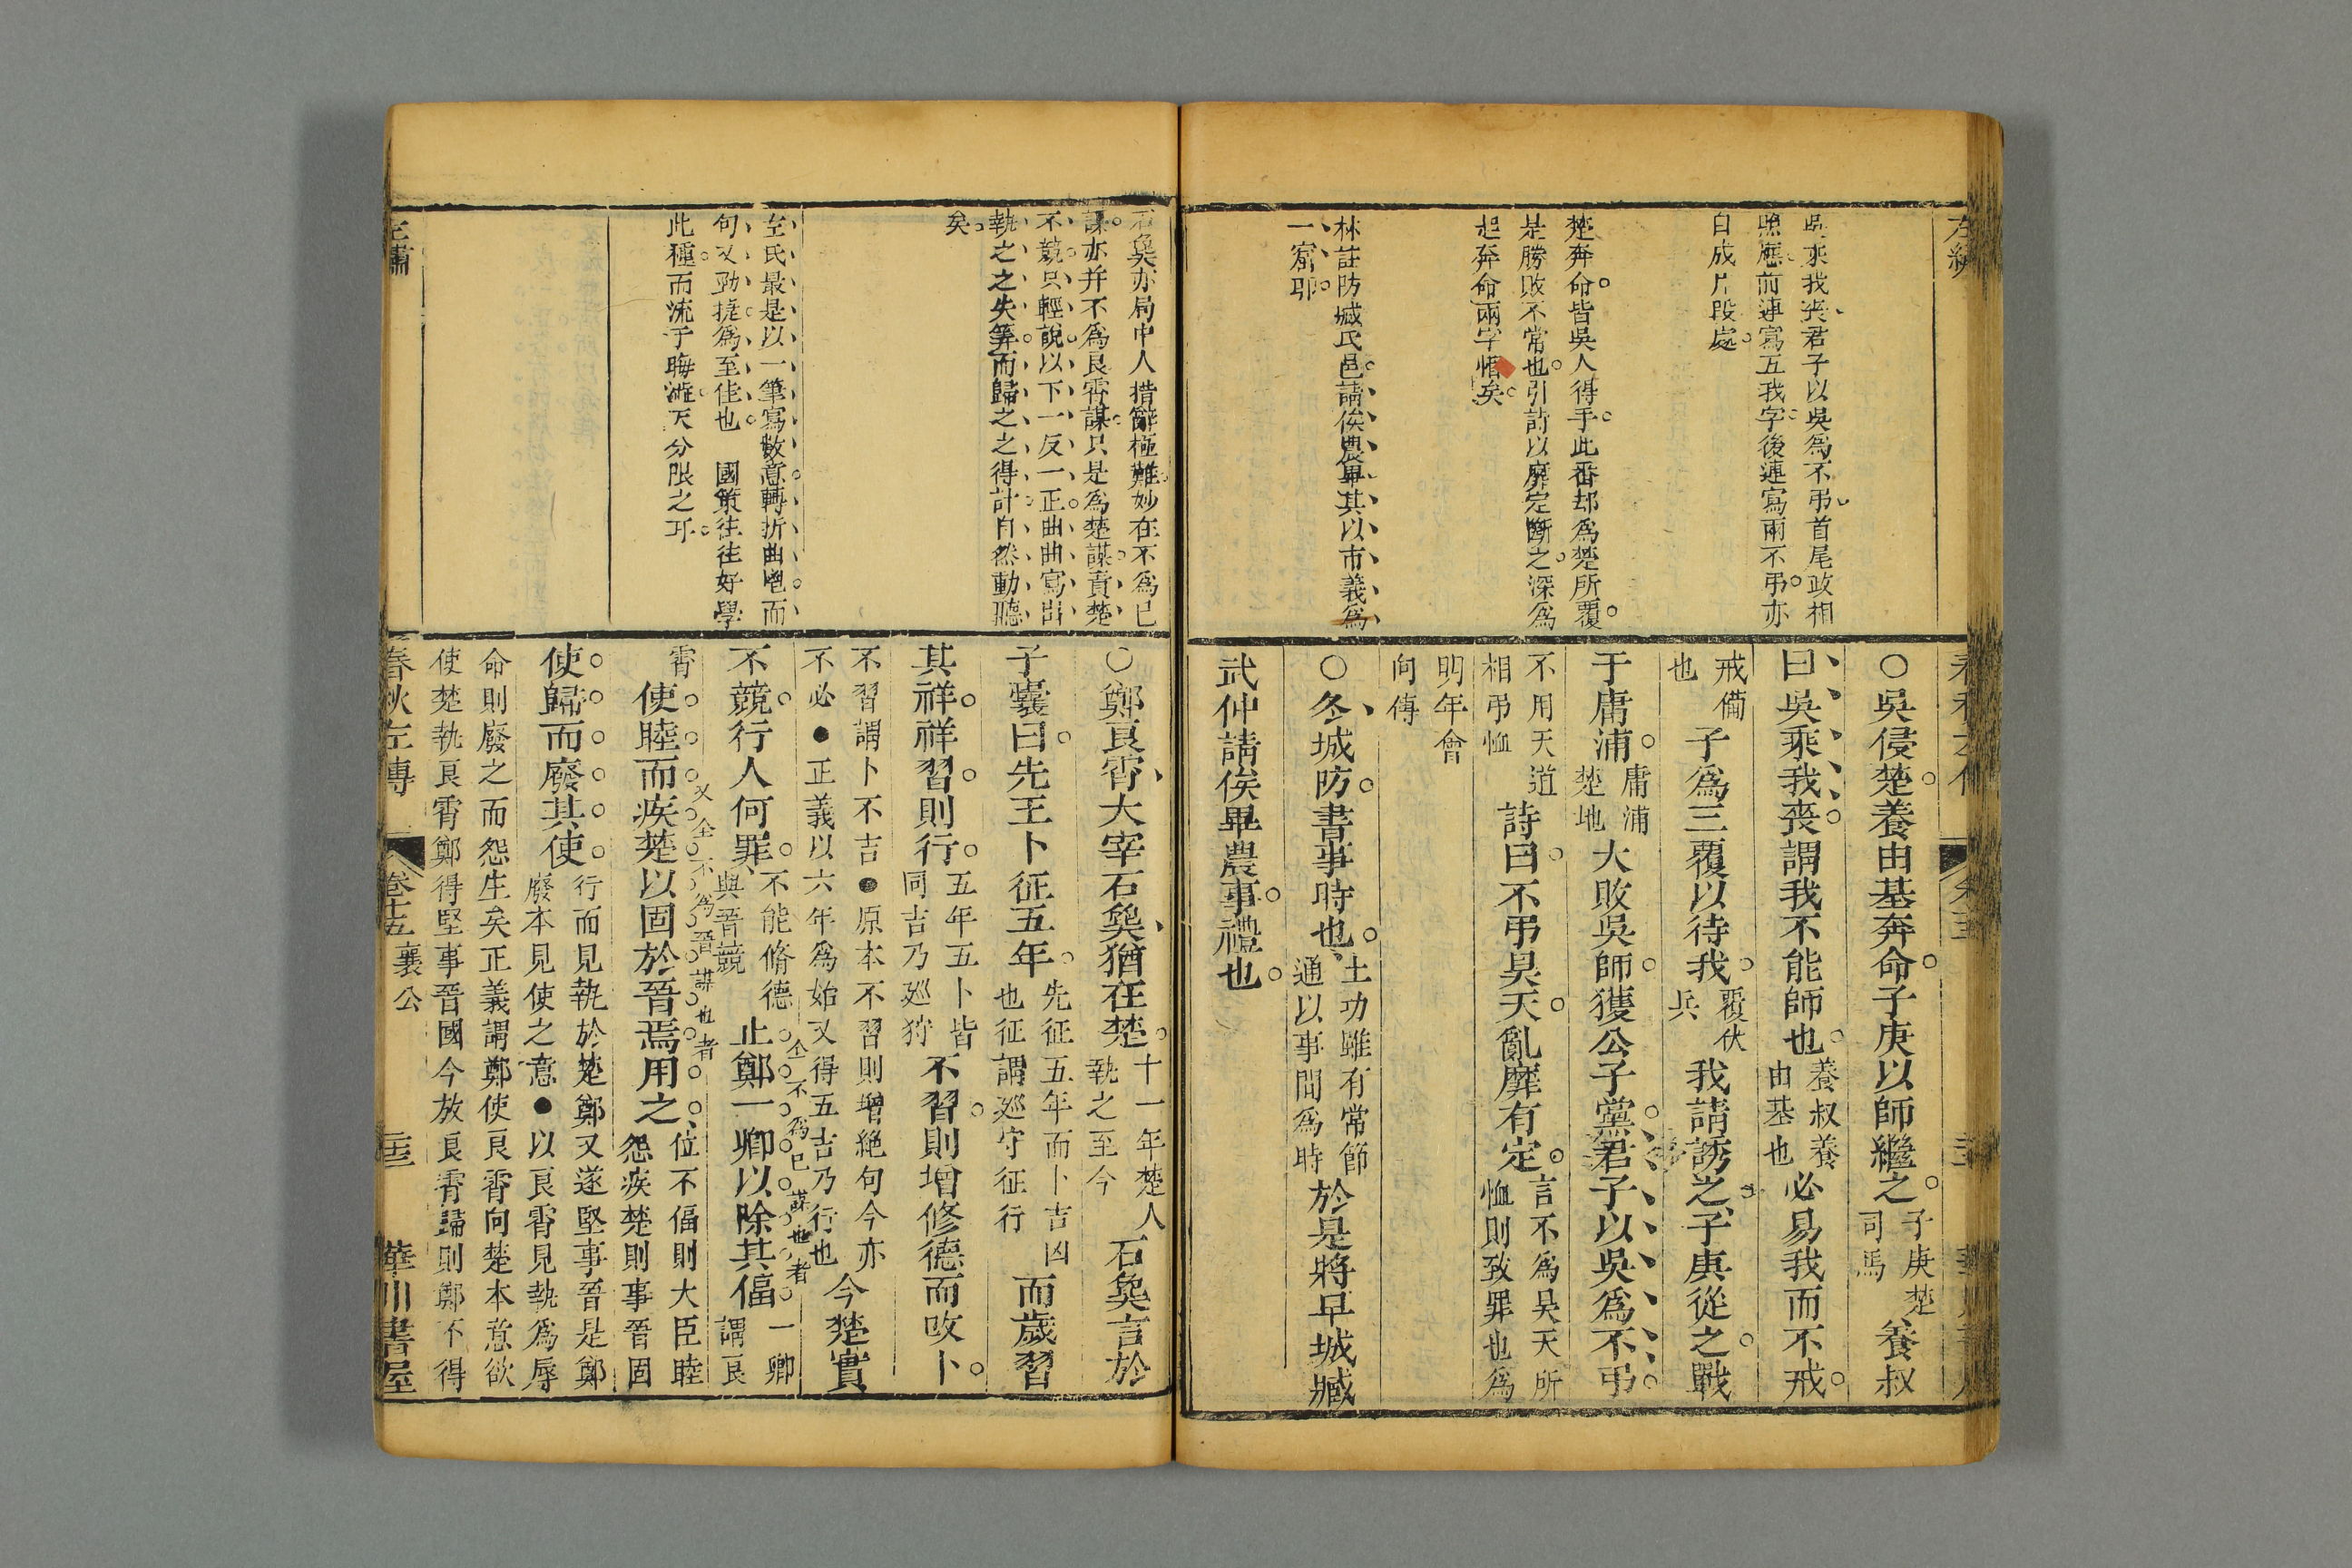 吳乘我喪君子以吳爲不弔首尾政相
照應前連寫五我字後連寫兩不弔亦
自成片段處
楚奔命皆吳人得手此番却爲楚所覆
是勝敗不常也引詩以靡定斷之深爲
起奔命兩字惜矣
林註防臧氏邑請俟農畢其以市義爲
一窟耶
○吳侵楚養由基奔命子庚以師繼之子庚楚司馬養叔
曰吳乘我喪謂我不能師也養叔養由基也必易我而不戒
戒備也子爲三覆以待我覆伏兵我請誘之子庚從之戰
于庸浦庸浦楚地大敗吳師獲公子黨君子以吳爲不弔
不用天道相弔恤詩曰不弔昊天亂靡有定言不爲昊天所恤則致罪也爲
明年會向傳
○冬城防書事時也土功雖有常節通以事間爲時於是將早城臧
武仲請俟畢農事禮也
石㚟亦局中人措辭極難妙在不爲已
謀亦并不爲良霄謀只是爲楚謀責楚
不競只輕說以下一反一正曲曲寫出
執之之失筭而歸之之得計自然動聽
矣
左氏最是以一筆寫數意轉折曲鬯而
句又勁㨗爲至佳也 國策往往好學
此種而流于晦澁天分限之耳
○鄭良霄大宰石㚟猶在楚十一年楚人執之至今石㚟言於
子囊曰先王卜征五年先征五年而卜吉凶也征謂廵守征行而歲習
其祥祥習則行五年五卜皆同吉乃廵狩不習則增修德而攺卜
不習謂卜不吉●原本不習則增絕句今亦不必●正義以六年爲始又得五吉乃行也今楚實
不競行人何罪不能脩德與晉競止鄭一卿以除其偪一卿謂良
仝不爲已謀也者
霄使睦而疾楚以固於晉焉用之位不偪則大臣睦怨疾楚則事晉固
又仝不爲晉謀也者
使歸而廢其使行而見執於楚鄭又遂堅事晉是鄭廢本見使之意●以良霄見執爲辱
命則廢之而怨生矣正義謂鄭使良霄向楚本意欲
使楚執良霄鄭得堅事晉國今放良霄歸則鄭不得
左繡
春秋左傳
卷十五 襄公
華川書屋